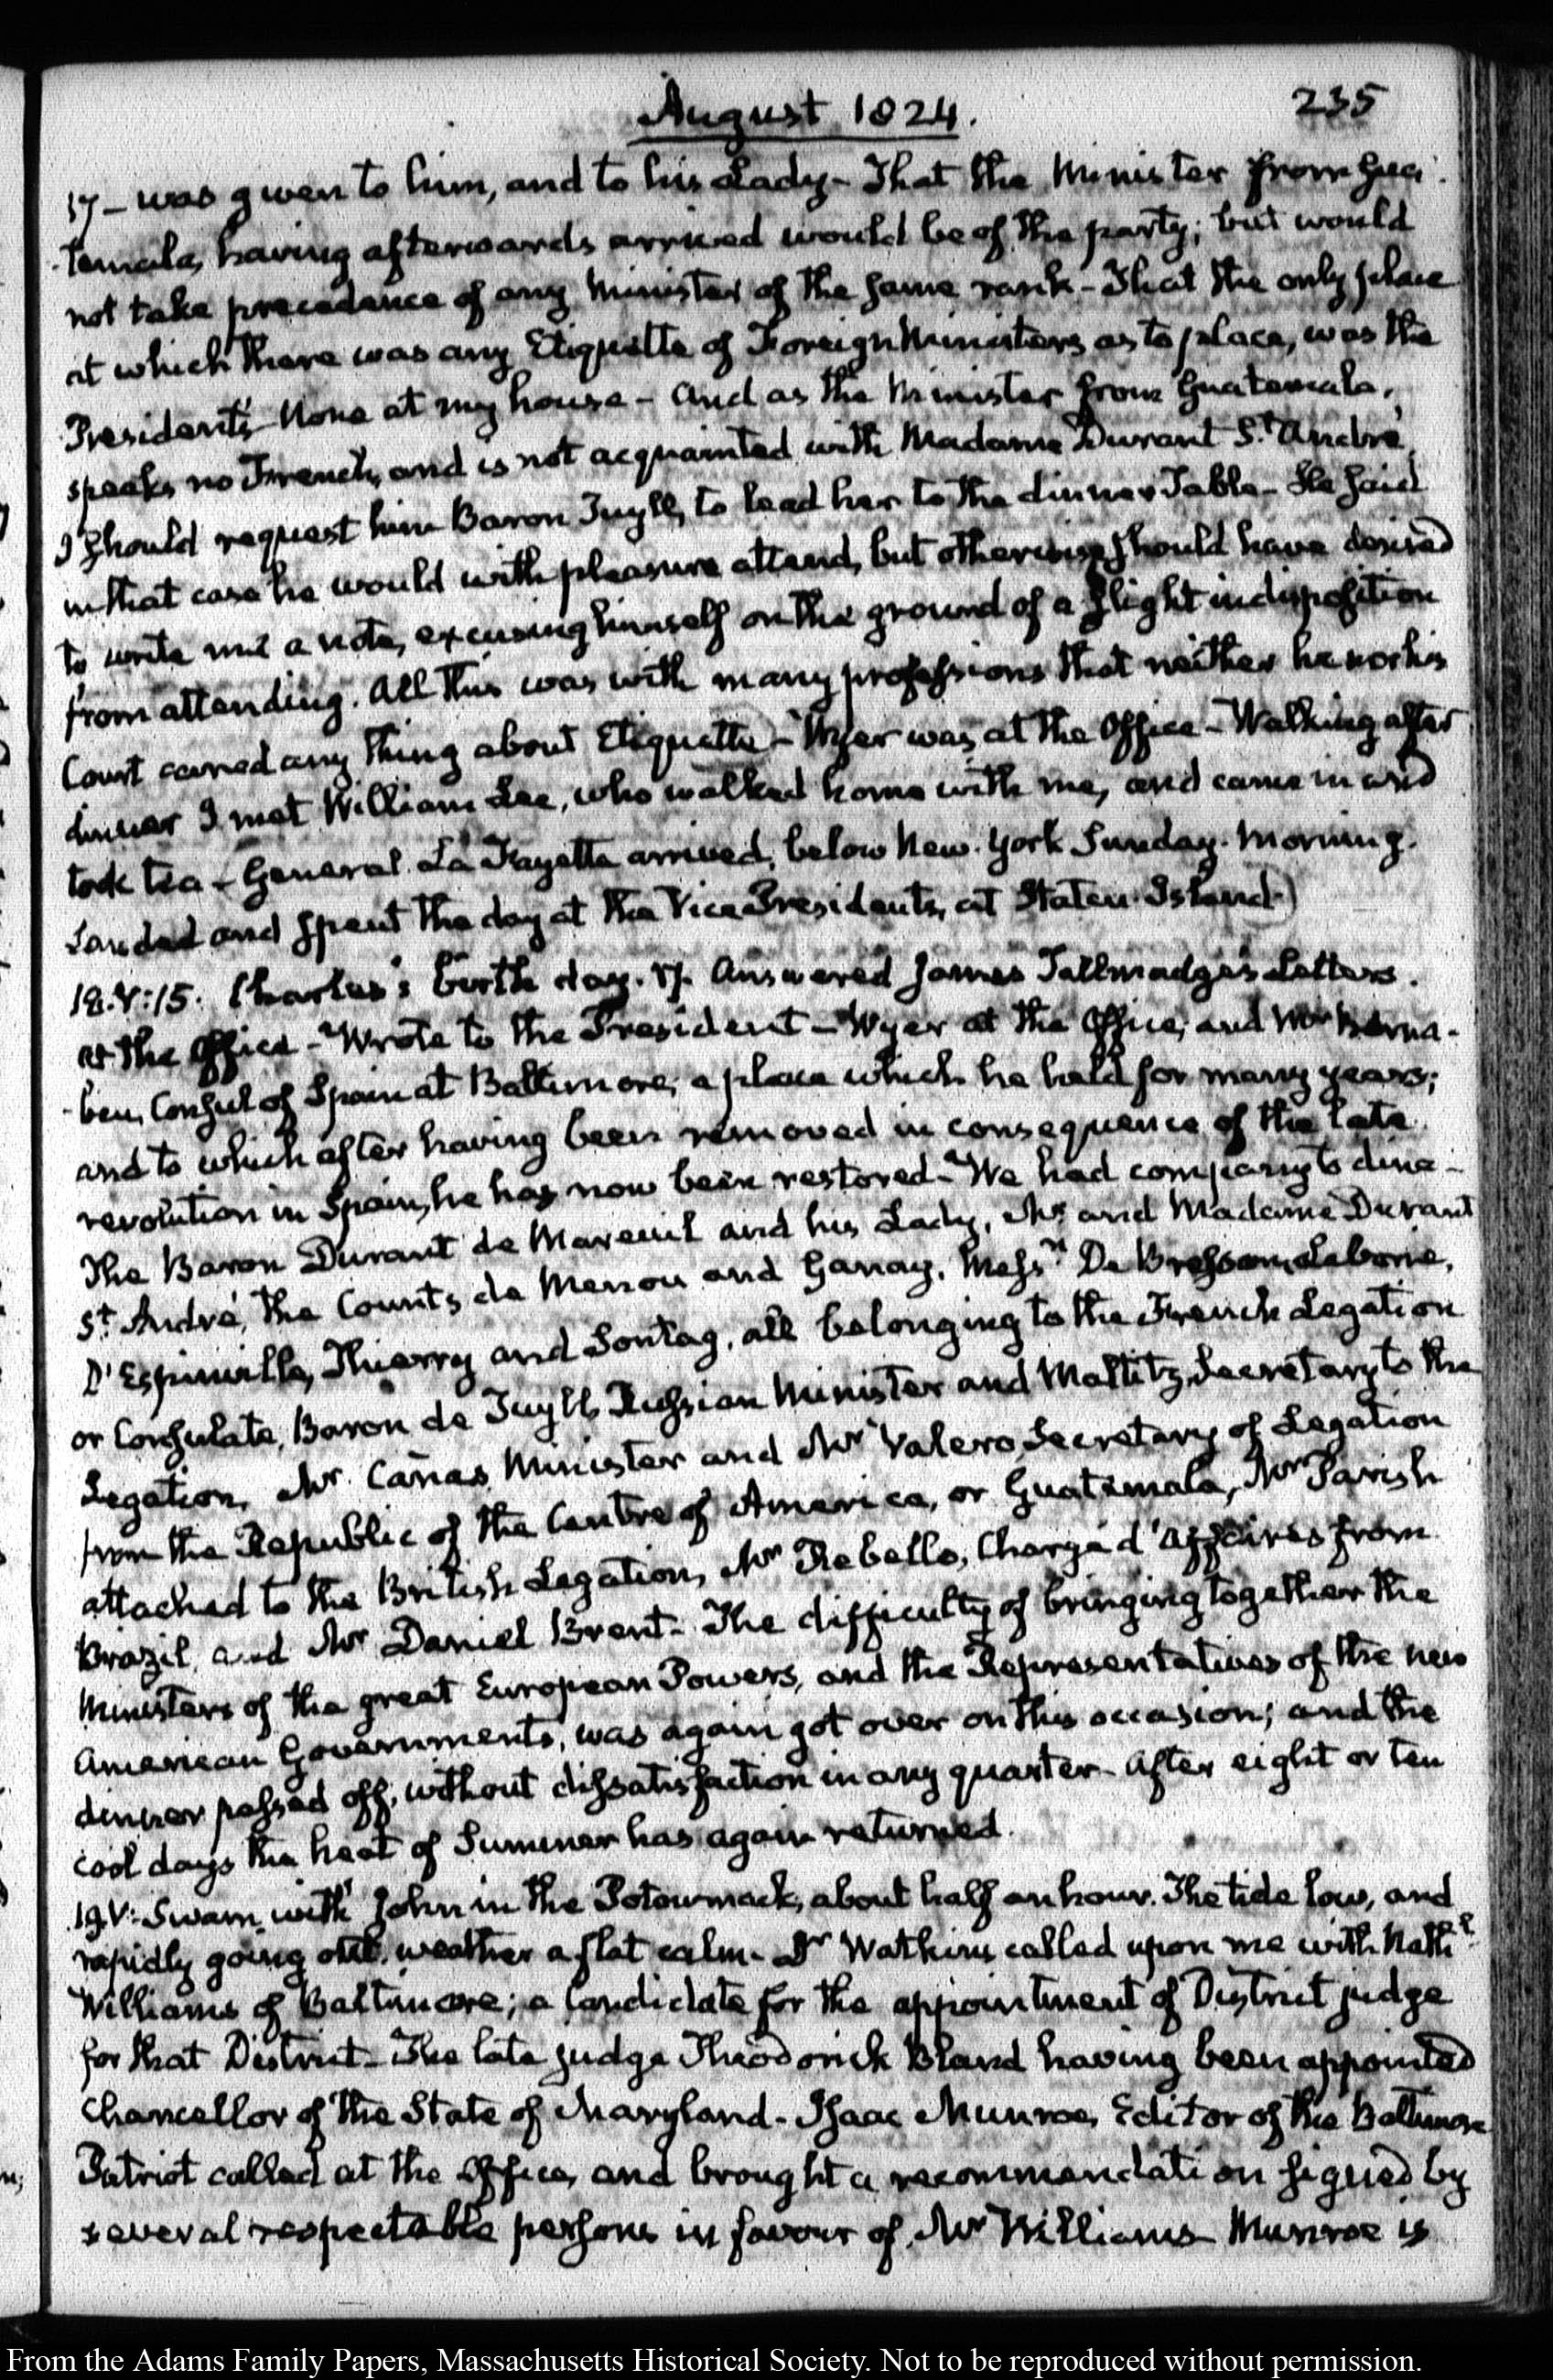 August 1824.
235
17 — was given to him, and to his Lady — That the Minister from Gua-
-temala, having afterwards arrived would be of the party; but would
not take precedence of any Minister of the same rank — That the only place
at which there was any Etiquette of Foreign Ministers as to place, was the
President's None at my house — And as the Minister from Guatemala,
speaks no French, and is not acquainted with Madame Durant St. André,
I should request him Baron Tuyll, to lead her to the dinner Table — He said
in that case he would with pleasure attend, but otherwise should have desired
to write me a note, excusing himself on the ground of a slight indisposition
from attending. All this was with many professions that neither he nor his
Court cared any thing about Etiquette — Wyer was at the Office — Walking after
dinner I met William Lee, who walked home with me, and came in and
took tea — General La Fayette arrived, below New-York Sunday-Morning.
Landed and spent the day at the Vice Presidents, at Staten-Island.
18. V:15. Charles's birth day. 17. Answered James Tallmadge's Letters.
at the Office — Wrote to the President — Wyer at the Office, and Mr Berna-
-beu, Consul of Spain at Baltimore, a place which he held for many years;
and to which after having been removed in consequence of the late
revolution in Spain, he has now been restored — We had company to dine —
The Baron Durant de Mareuil and his Lady, Mr. and Madame Durant
St. André, the Counts de Menou and Ganay, Messrs. De Bresson, Laborie,
D'Espinville, Thierry and Sontag, all belonging to the French Legation
or Consulate, Baron de Tuyll, Russian Minister and Maltitz, Secretary to the
Legation, Mr. Cañas Minister and Mr Valero Secretary of Legation
from the Republic of the Centre of America, or Guatemala, Mr Parish
attached to the British Legation, Mr Rebello, Chargé d'Affaires from
Brazil, and Mr Daniel Brent — The difficulty of bringing together the
Ministers of the great European Powers, and the Representatives of the new
American Governments, was again got over on this occasion; and the
dinner passed off, without dissatisfaction in any quarter — After eight or ten
cool days the heat of Summer has again returned.
19. V: Swam with John in the Potowmack, about half an hour. The tide low, and
rapidly going out. weather a flat calm — Dr Watkins called upon me with Nathl.
Williams of Baltimore; a Candidate for the appointment of District judge
for that District — The late judge Theodorick Bland having been appointed
Chancellor of the State of Maryland — Isaac Munroe, Editor of the Baltimore
Patriot called at the Office, and brought a recommendation signed by
several respectable persons in favour of Mr Williams — Munroe is
From the Adams Family Papers, Massachusetts Historical Society. Not to be reproduced without permission.